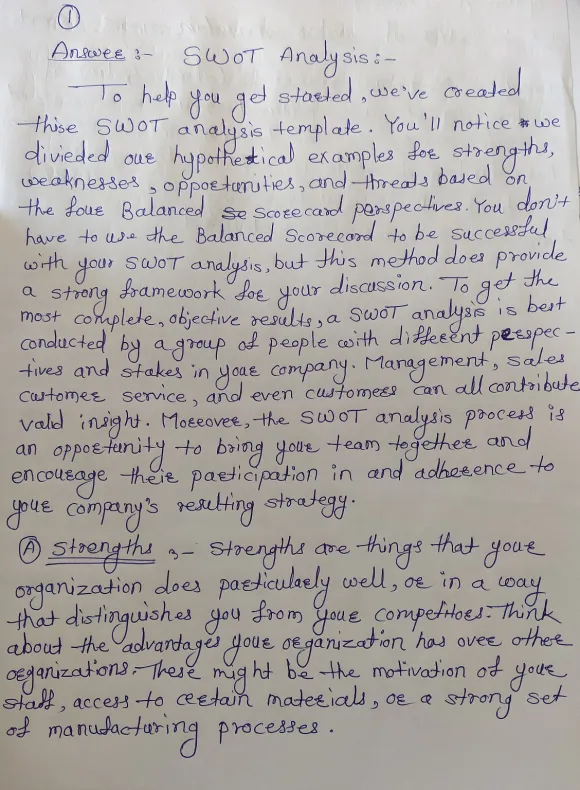 ①
Answer :- SWOT Analysis :-
To help you get started, we've created
thise SWOT analysis template. You'll notice we
divieded our hypothetical examples for strengths,
weaknesses, opportunities, and threats based on
the four Balanced se scorecard perspectives. You don't
have to use the Balanced Scorecard to be successful
with your SWOT analysis, but this method does provide
a strong framework for your discussion. To get the
most complete, objective results, a SWOT analysis is best
conducted by a group of people with different perspec-
tives and stakes in your company. Management, sales
customer service, and even customers can all contribute
valid insight. Moreover, the SWOT analysis process is
an opportunity to bring your team together and
encourage their participation in and adherence to
your company's resulting strategy.
Ⓐ Strengths :- Strengths are things that your
organization does particularly well, or in a way
that distinguishes you from your competitors. Think
about the advantages your organization has over other
organizations. These might be the motivation of your
staff, access to certain materials, or a strong set
of manufacturing processes.